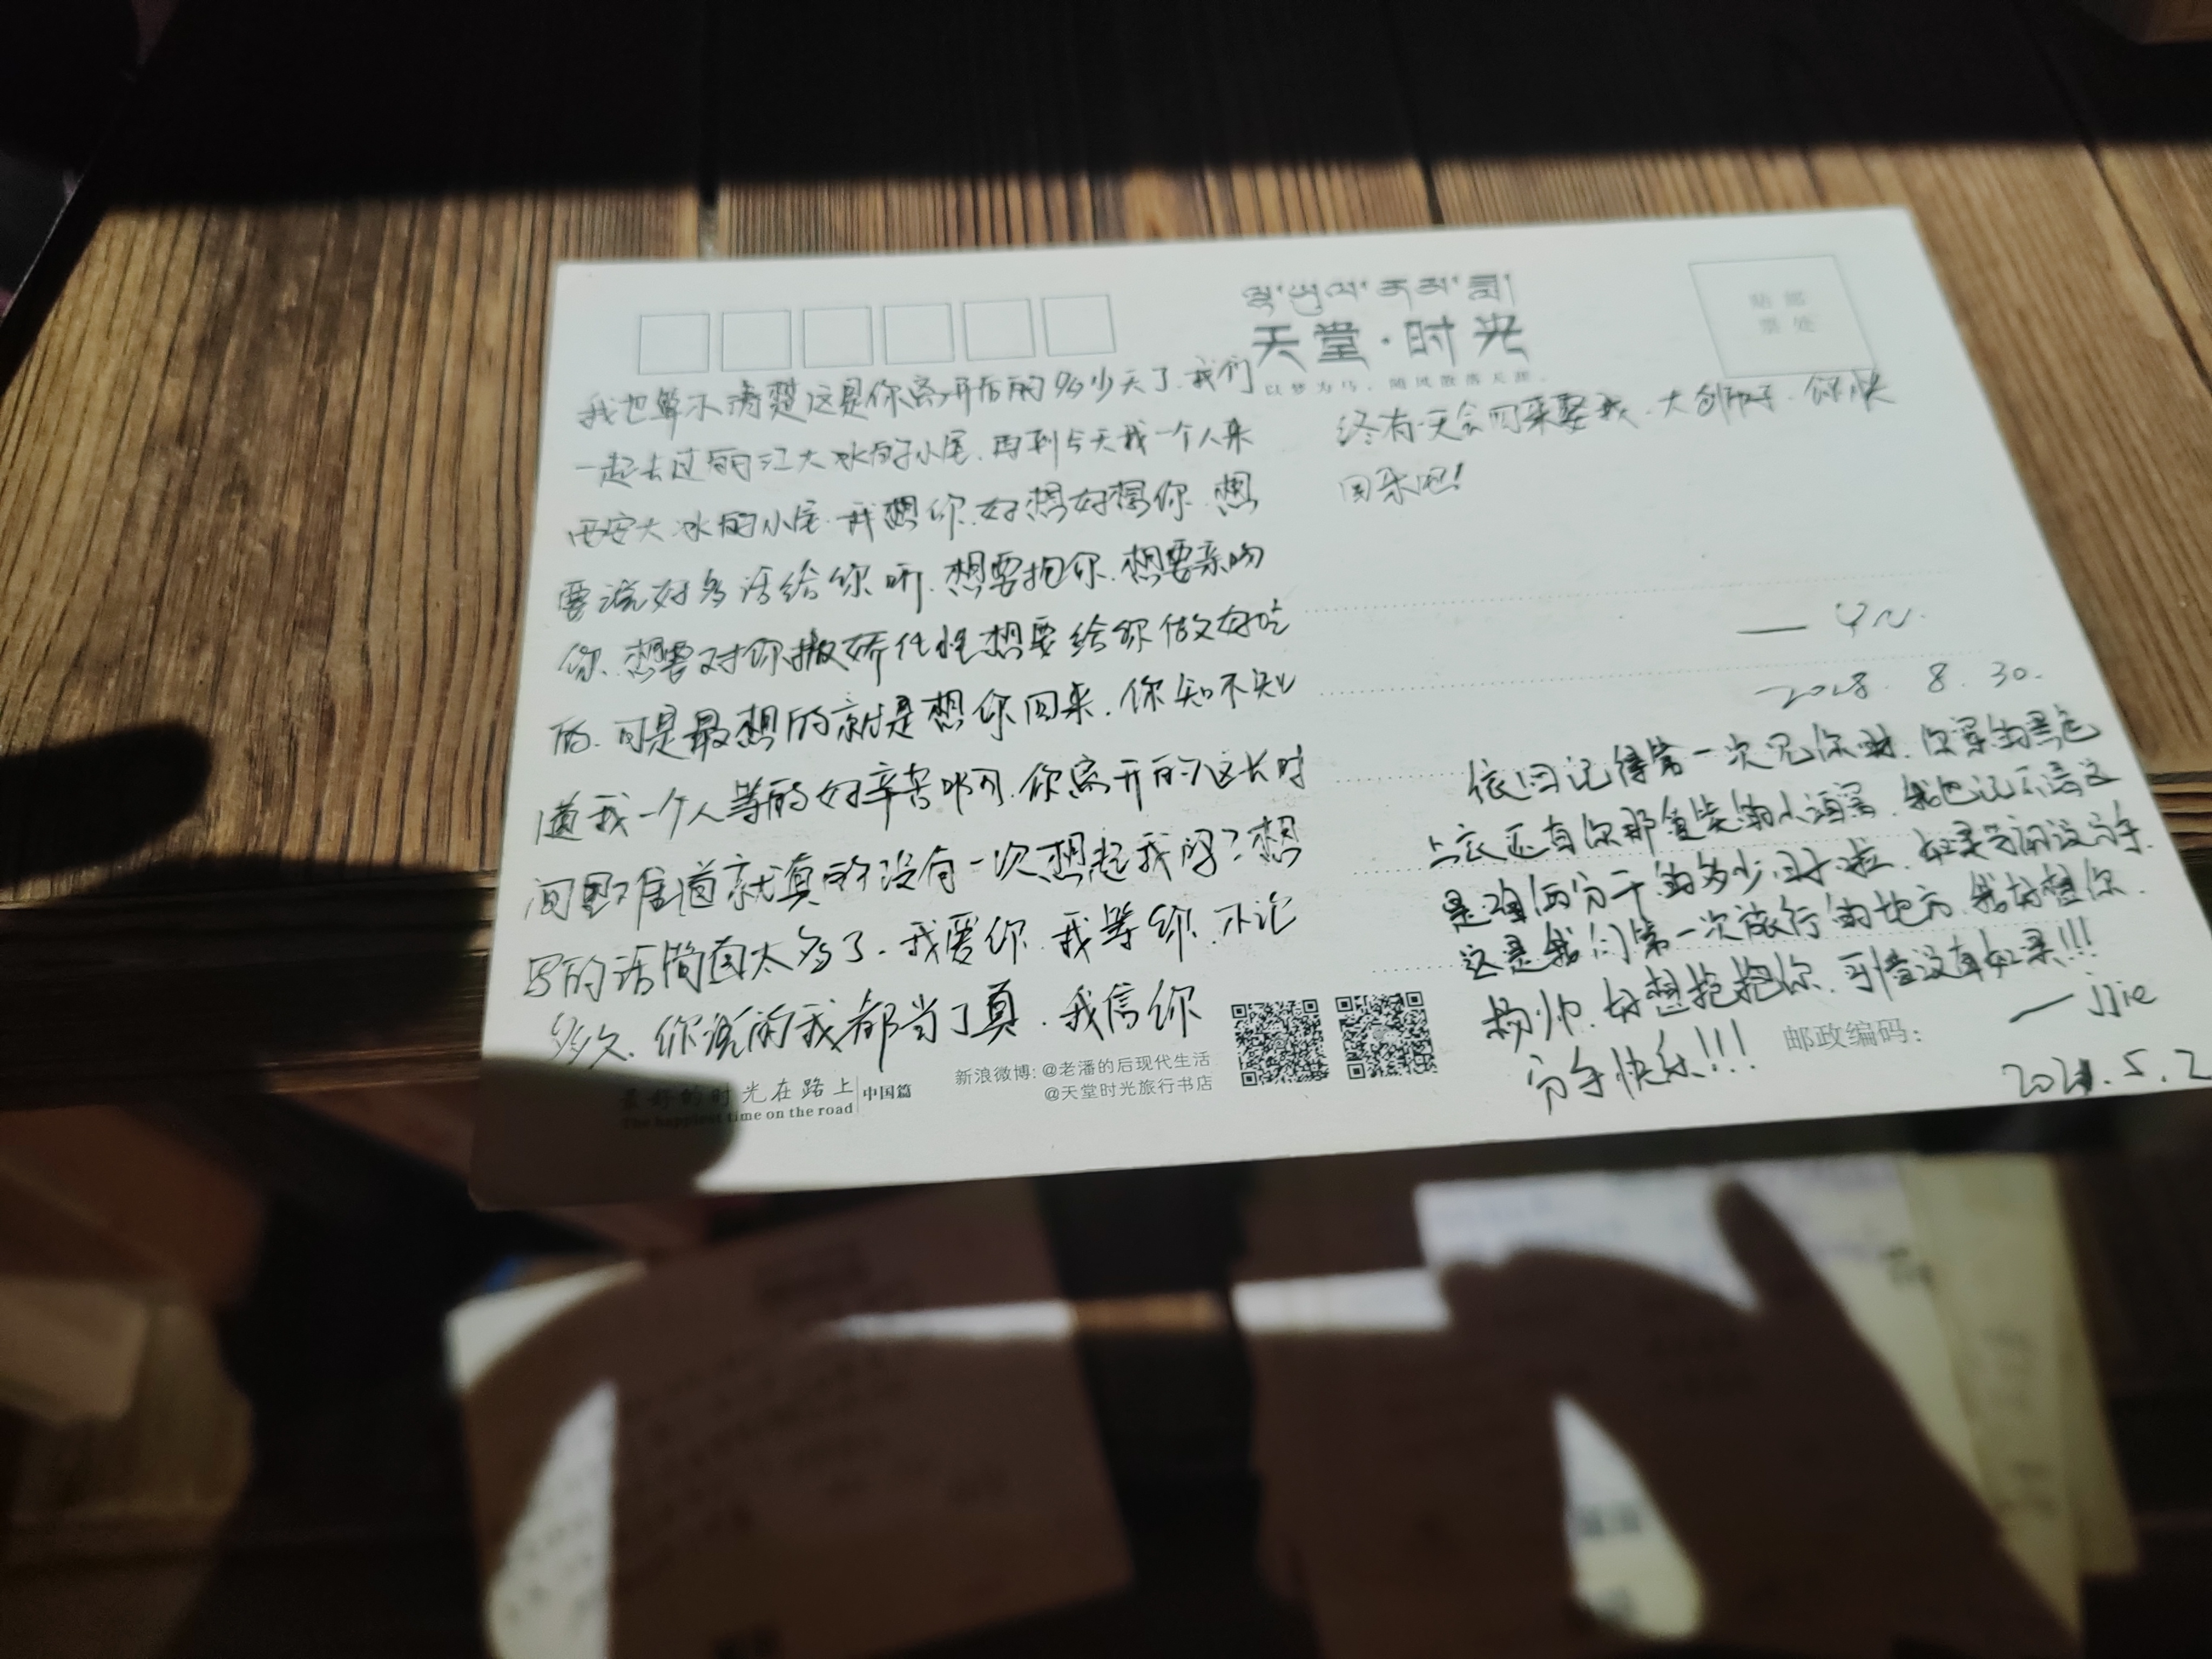 天堂·时光
以梦为马，随风散落天涯。
贴邮
票处
我也算不清楚这是你离开后的多少天了.我们
一起去过丽江大冰的小屋.再到今天我一个人来
西安大冰的小屋.我想你.好想好想你.想
要说好多话给你听.想要抱你.想要亲吻
你.想要对你撒娇任性想要给你做好吃
的.可是最想的就是想你回来.你知不知
道我一个人等的好辛苦啊.你离开的这长时
间里难道就真的没有一次想起我吗?想
写的话简直太多了.我爱你.我等你.不论
多久.你说的我都当了真.我信你
终有一天会回来娶我.大创子.你快
回来吧!
— YN.
2018. 8. 30.
依旧记得第一次见你时.你穿的黑色
上衣还有你那傻笑的小酒窝.我也记不清这
是咱俩分手的多少时啦.如果当初没分手.
这是我们第一次旅行的地方.我好想你.
杨帅.好想抱抱你.可惜没有如果!!!
分手快乐!!! — jjie
2021.5.2
邮政编码:
最好的时光在路上 中国篇
The happiest time on the road
新浪微博: @老潘的后现代生活
@天堂时光旅行书店